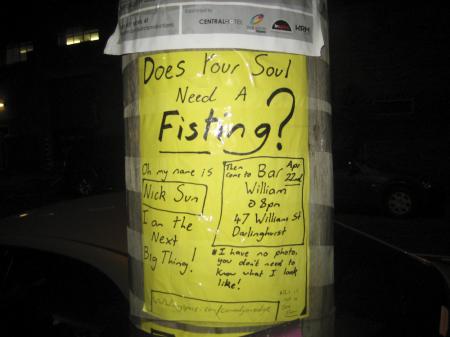 CENTRAL HOTEL
HRM
Does Your Soul
Need A
Fisting?
Oh my name is
Nick Sun
I am the
Next
Big Thing!
Then come to Bar
Apr 22nd
William
@ 8pm
47 William St
Darlinghurst
* I have no photo,
you don't need to
know what I look
like!